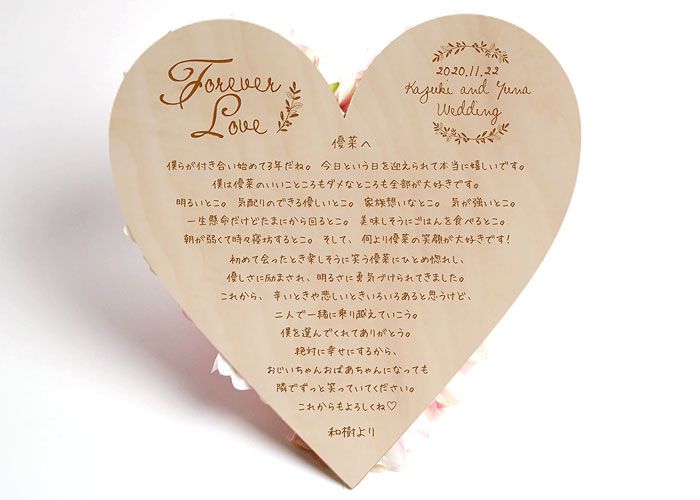 Forever
Love
2020.11.22
Kazuki and Yuna
Wedding
優菜へ
僕らが付き合い始めて3年だね。 今日という日を迎えられて本当に嬉しいです。
僕は優菜のいいこところもダメなところも全部が大好きです。
明るいとこ。 気配りのできる優しいとこ。 家族想いなとこ。 気が強いとこ。
一生懸命だけどたまにから回るとこ。 美味しそうにごはんを食べるとこ。
朝が弱くて時々寝坊するとこ。 そして、 何より優菜の笑顔が大好きです!
初めて会ったとき楽しそうに笑う優菜にひとめ惚れし、
優しさに励まされ、明るさに勇気づけられてきました。
これから、 辛いときや悲しいときいろいろあると思うけど、
二人で一緒に乗り越えていこう。
僕を選んでくれてありがとう。
絶対に幸せにするから、
おじいちゃんおばあちゃんになっても
隣でずっと笑っていてください。
これからもよろしくね♡
和樹より